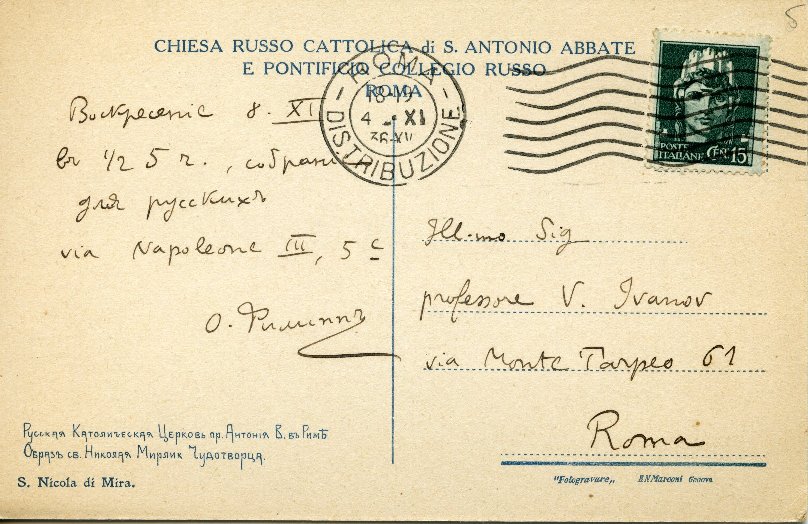 CHIESA RUSSO CATTOLICA di S. ANTONIO ABBATE
E PONTIFICIO COLLEGIO RUSSO
ROMA
ROMA
18-19
4 XI
36 XV
DISTRIBUZIONE
POSTE
ITALIANE CENT. 15
5
Воскресенье 8. XI
въ 1/2 5 ч., собрание
для русскихъ
via Napoleone III, 5 c
О. Филиппъ
Ill-mo Sig
professore V. Ivanov
via Monte Tarpeo 61
Roma
Русская Католическая Церковь пр. Антонія В. въ Римѣ
Образъ св. Николая Мирлик Чудотворца.
S. Nicola di Mira.
"Fotogravure„ E.N. Marconi Genova